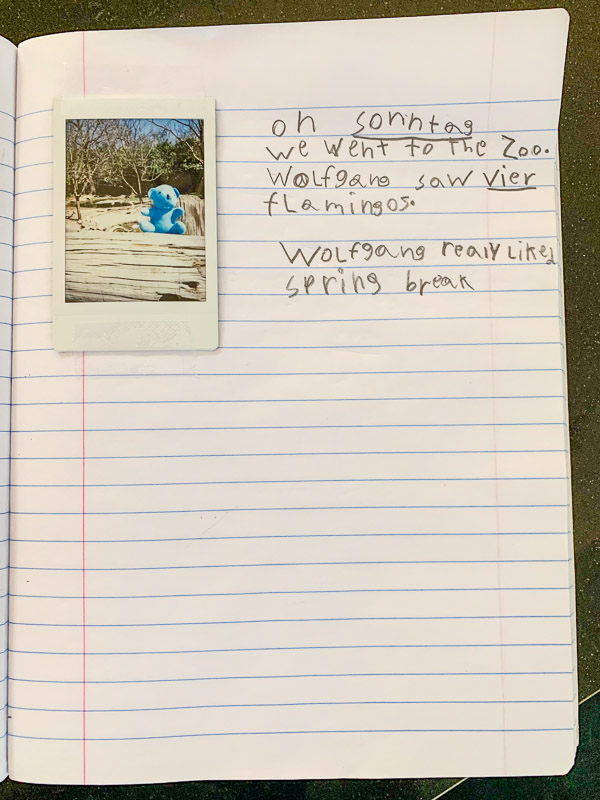 on sonntag
we went to the Zoo.
Wolfgang saw vier
flamingos.
Wolfgang realy liked
spring break